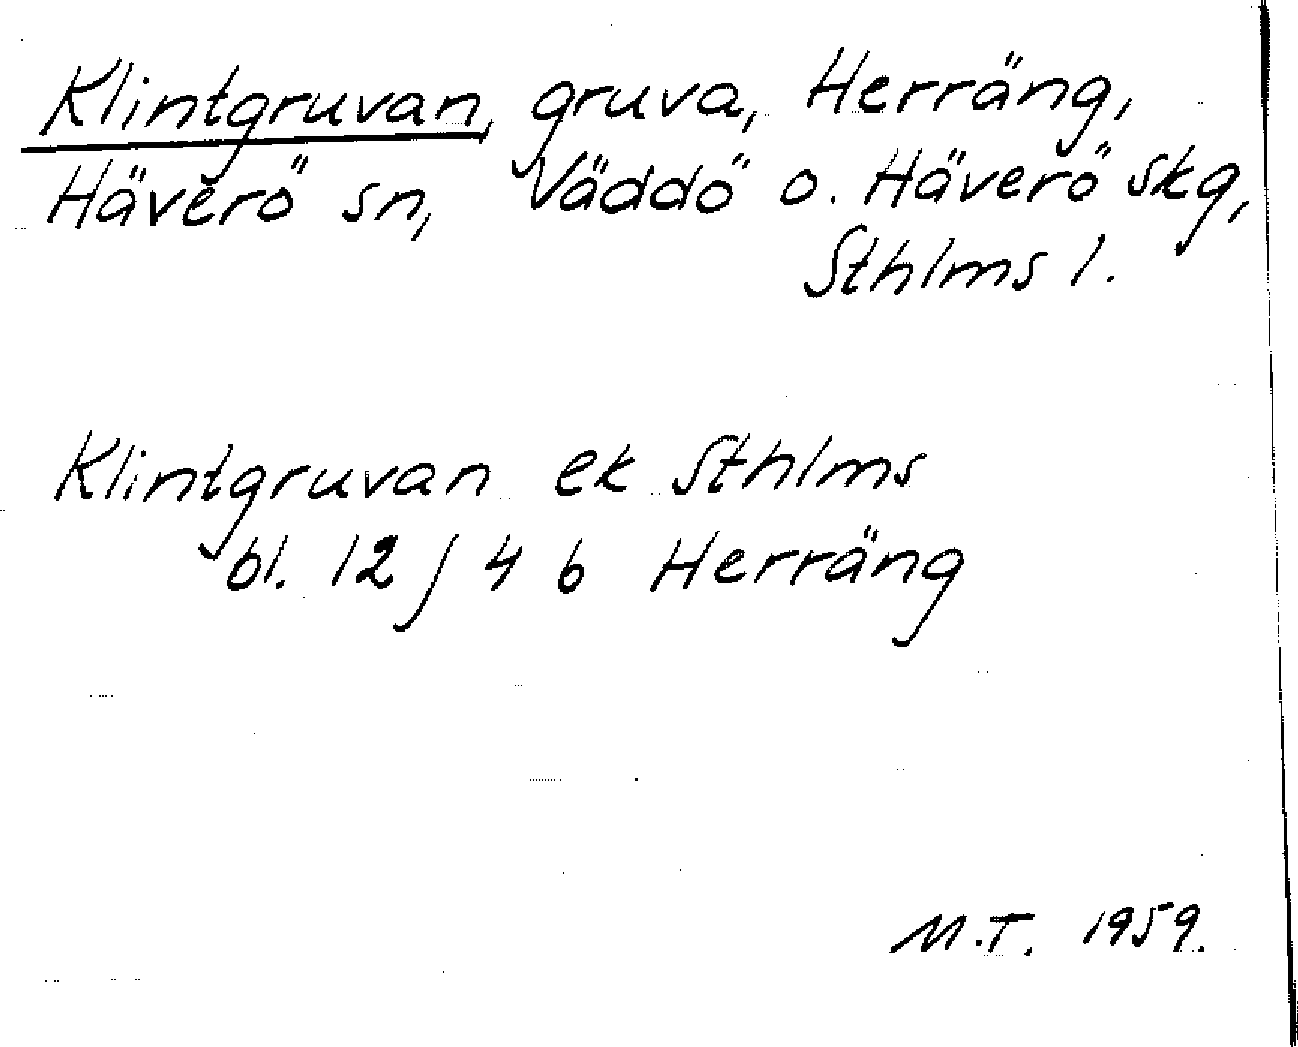 Klintgruvan, gruva, Herräng,
Häverö sn, Väddö o. Häverö skg,
Sthlms l.
Klintgruvan ek Sthlms
bl. 12 j 4 b Herräng
M.T. 1959.